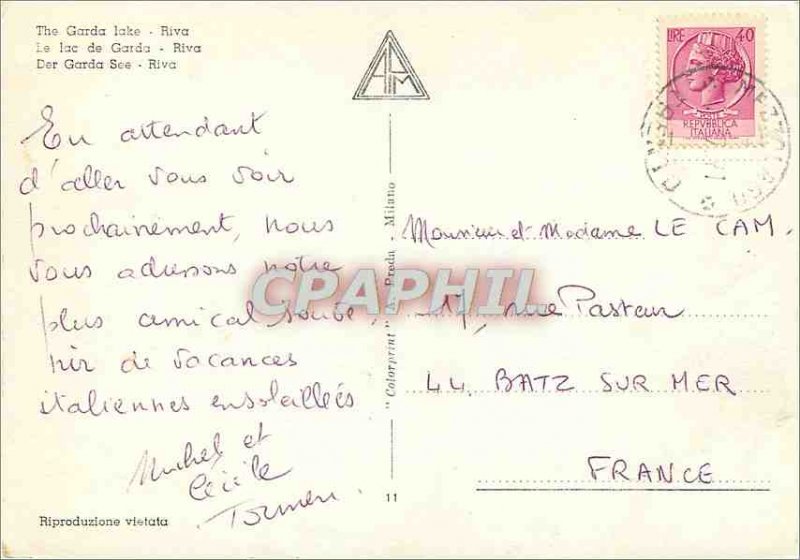 The Garda lake - Riva
Le lac de Garda - Riva
Der Garda See - Riva
LIRE 40
POSTE
REPVBBLICA
ITALIANA
En attendant
d'aller vous voir
prochainement, nous
vous adressons notre
plus amical souve
nir de vacances
italiennes ensoleillées
Michel et
Cécile
Riproduzione vietata
"Colorprint" Preda - Milano
11
Monsieur et Madame LE CAM.
17, rue
44. BATZ SUR MER
FRANCE
CPAPHIL